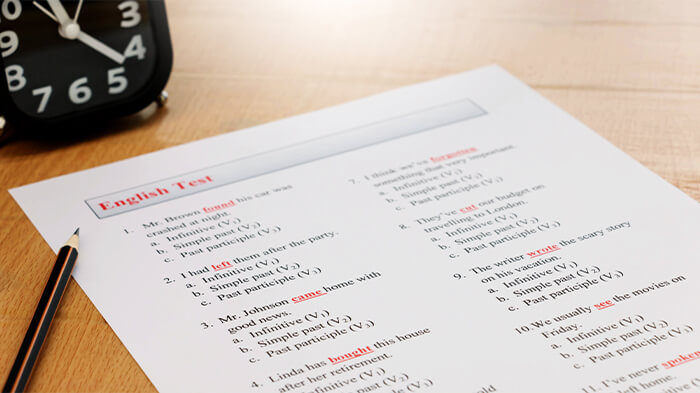 10
9
8
7
8
5
4
3
English Test
1. Mr. Brown found his car was
crashed at night.
a. Infinitive (V₁)
b. Simple past (V₂)
c. Past participle (V₃)
2. I had left them after the party.
a. Infinitive (V₁)
b. Simple past (V₂)
c. Past participle (V₃)
3. Mr. Johnson came home with
good news.
a. Infinitive (V₁)
b. Simple past (V₂)
c. Past participle (V₃)
4. Linda has bought this house
after her retirement.
a. Infinitive (V₁)
b. Simple past (V₂)
c. Past participle (V₃)
7. I think we've forgotten
something that very important.
a. Infinitive (V₁)
b. Simple past (V₂)
c. Past participle (V₃)
8. They've cut our budget on
travelling to London.
a. Infinitive (V₁)
b. Simple past (V₂)
c. Past participle (V₃)
9. The writer wrote the scary story
on his vacation.
a. Infinitive (V₁)
b. Simple past (V₂)
c. Past participle (V₃)
10. We usually see the movies on
Friday.
a. Infinitive (V₁)
b. Simple past (V₂)
c. Past participle (V₃)
11. I've never spoken